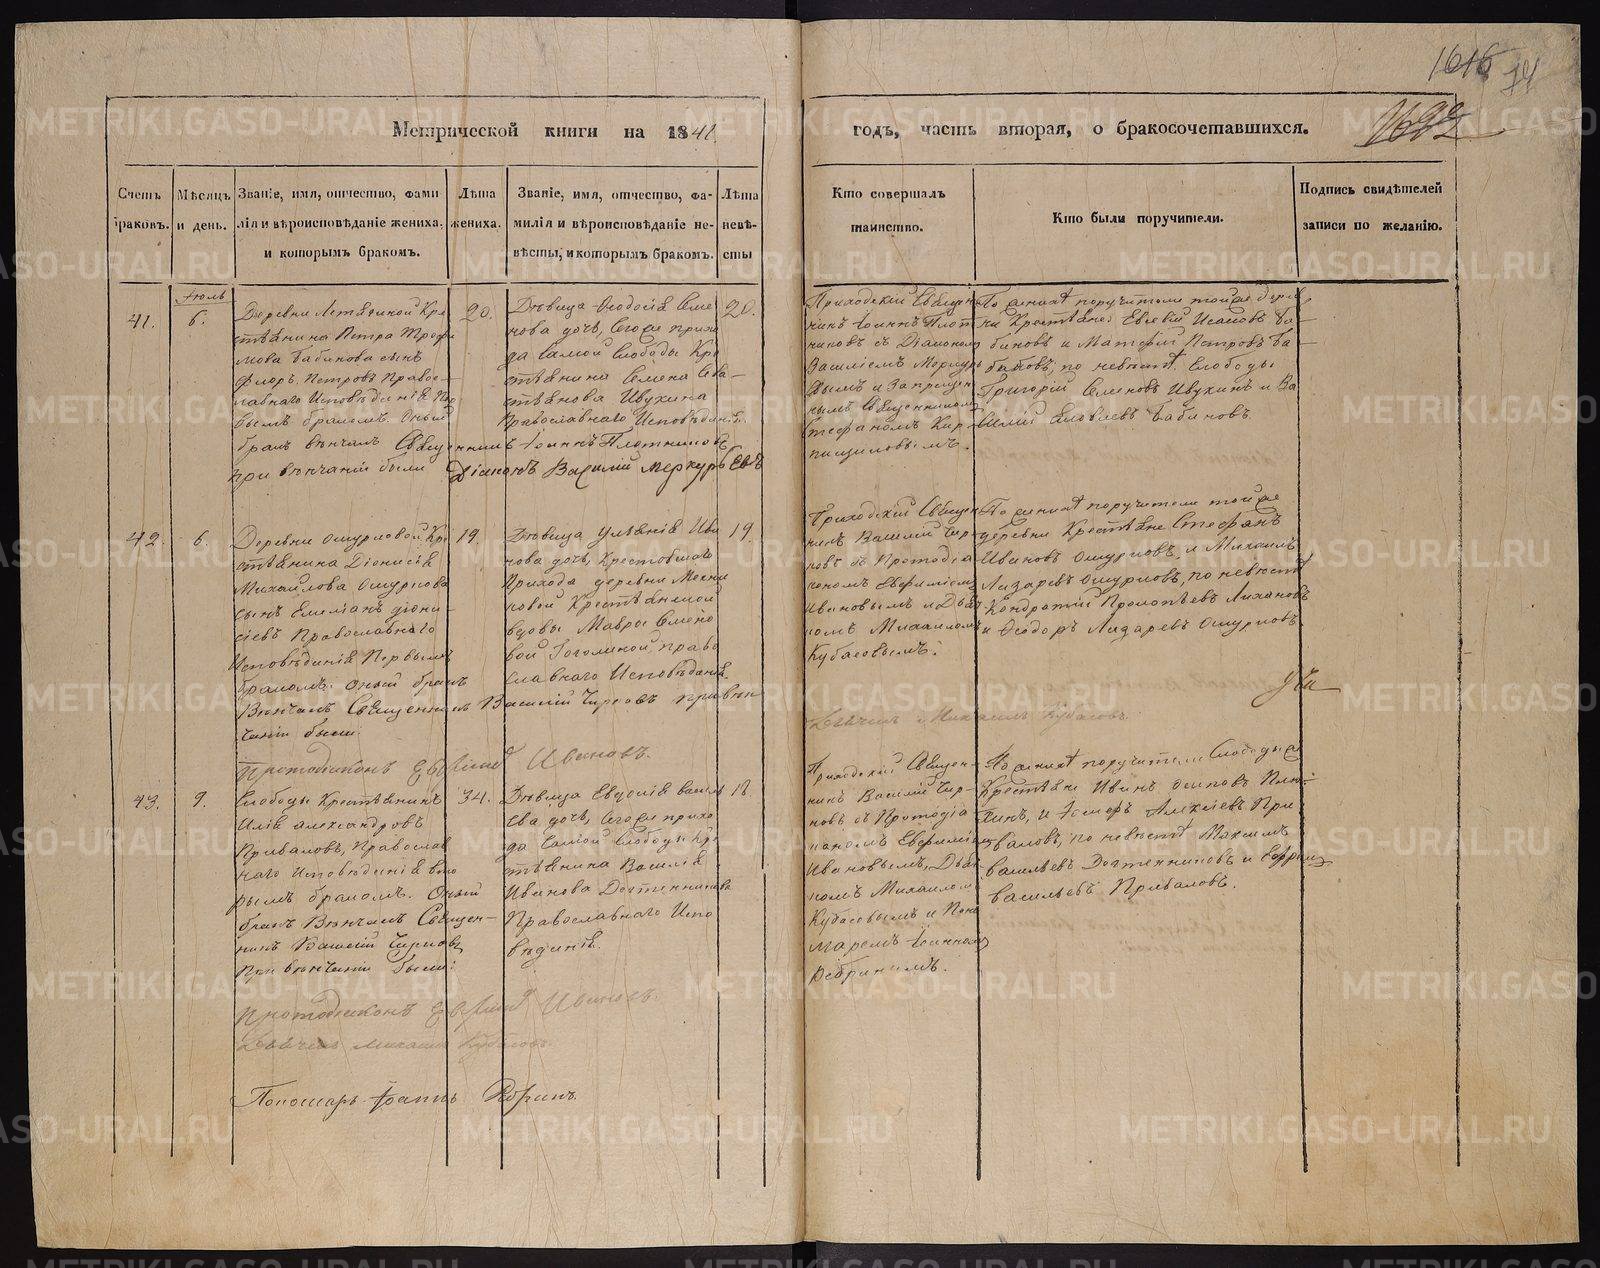 1616 74
1692
Метрической книги на 1841
годъ, часть вторая, о бракосочетавшихся.
Счетъ браковъ.
Мѣсяцъ и день.
Званіе, имя, отчество, фами
лія и вѣроисповѣданіе жениха,
и которымъ бракомъ.
Лѣта
жениха.
Званіе, имя, отчество, фа-
милія и вѣроисповѣданіе не-
вѣсты, и которымъ бракомъ.
Лѣта
невѣ-
сты
Кто совершалъ
таинство.
Кто были поручители.
Подпись свидѣтелей
записи по желанію.
41.
Іюль
6.
Деревни Кре
стьянина Петра Трофи
мова Бабинова сынъ
Флоръ Петровъ Правос-
лавнаго Исповѣданія Пер
вымъ бракомъ. Оный
бракъ вѣнчалъ Священникъ Іоаннъ Плотниковъ
при вѣнчаніи были Діаконъ Василій Меркурьевъ
20.
Дѣвица Ѳеодосія Семе
нова дочь, Сегоже прихо
да Самой Слободы Кре
стьянина Семена Сева-
стьянова Ивухина
Православнаго Исповѣданія.
20.
Приходскій Священ
никъ Іоаннъ Плот
никовъ съ Діакономъ
Василіемъ Меркурь
евымъ и Запрещен
нымъ Священникомъ
Стефаномъ Кир
пищиковымъ.
По женихѣ поручители тойже дерев
ни Крестьяне: Евсевій Исаковъ Ба-
биновъ и Матфій Петровъ Ба-
биновъ, по невѣстѣ Слободы
Григорій Семеновъ Ивухинъ и Ва
силій Яковлевъ Бабиновъ
42.
6.
Деревни Ошурковой Кре
стьянина Діонисія
Михайлова Ошуркова
сынъ Емиліанъ Діони-
сіевъ Православнаго
Исповѣданія Первымъ
бракомъ. Оный бракъ
Вѣнчалъ Священникъ Василій Чирковъ при вѣн
чаніи были
Протодіаконъ Евфимій Ивановъ.
19.
Дѣвица Уліанія Ива
нова дочь, Крестовскаго
Прихода деревни
Крестьянской
вдовы Мавры Семено
вой Гоголиной, право
славнаго Исповѣданія
19.
Приходскій Священ
никъ Василій Чир-
ковъ съ Протодіа
кономъ Евфиміемъ
Ивановымъ и Дьяч
комъ Михаиломъ
Кубасовымъ.
По женихѣ поручители тойже
деревни Крестьяне Стефанъ
Ивановъ Ошурковъ, и Михаилъ
Лазаревъ Ошурковъ, по невѣстѣ
Кондратій Прокопьевъ Лихановъ
и Ѳеодоръ Лазаревъ Ошурковъ.
Дьячекъ Михаилъ Кубасовъ.
43.
9.
Слободы Крестьянинъ
Илія Александровъ
Прибаловъ, Православ
наго Исповѣданія вто
рымъ бракомъ. Оный
бракъ Вѣнчалъ Священ-
никъ Василій Чирковъ
При вѣнчаніи были:
Протодіаконъ Евфимій Ивановъ.
Дьячекъ Михаилъ Кубасовъ
Пономарь Іоаннъ Ребринъ.
34.
Дѣвица Евдокія Василь
ева дочь, Сегоже прихо
да Самой Слободы Кре
стьянина Василія
Иванова Дегтянникова
Православнаго Испо
вѣданія.
18.
Приходскій Священ-
никъ Василій Чир-
ковъ съ Протодіа
кономъ Евфиміемъ
Ивановымъ, Дьяч
комъ Михаиломъ
Кубасовымъ и Поно
маремъ Іоанномъ
Ребринымъ.
По женихѣ поручители Слободы
Крестьяне Иванъ Осиповъ
Алексіевъ При
баловъ, по невѣстѣ Максимъ
Васильевъ Дегтянниковъ и Ефремъ
Васильевъ Прибаловъ.